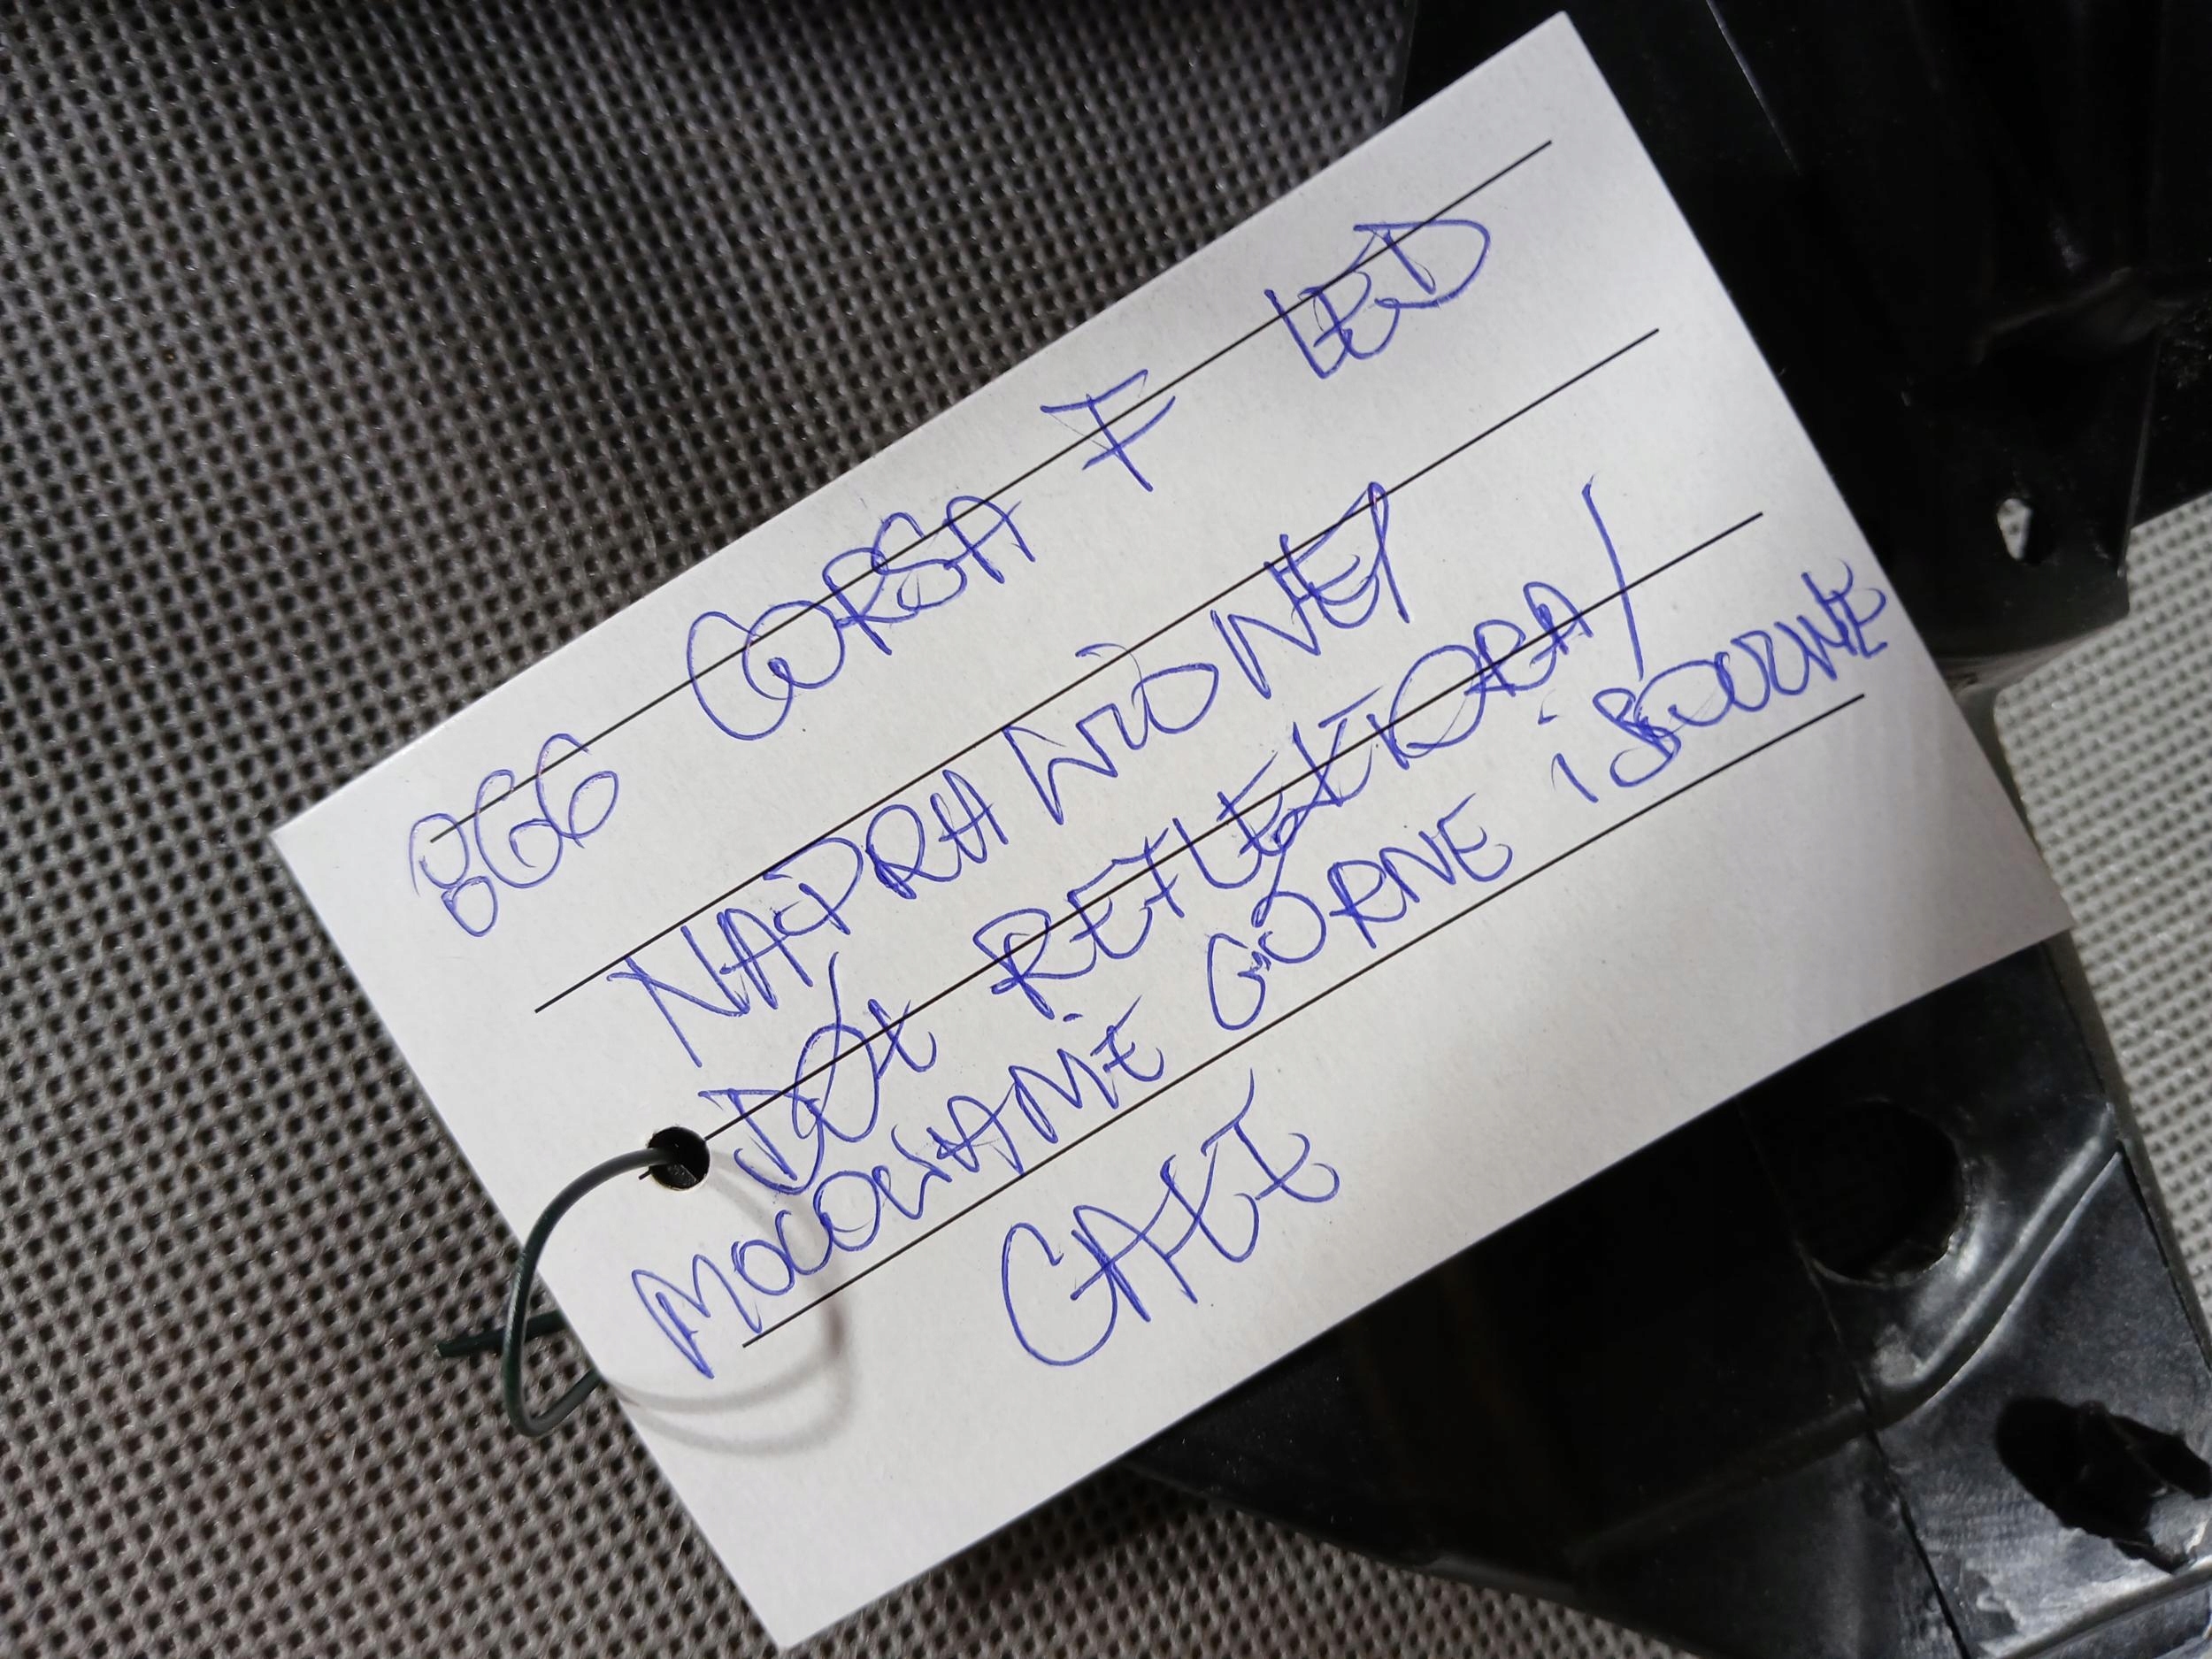 866 CORSA F LED
NAPRAWIONEY
DÓŁ REFLEKTORA/
MOCOWANIE GÓRNE i BOCZNE
CAŁE